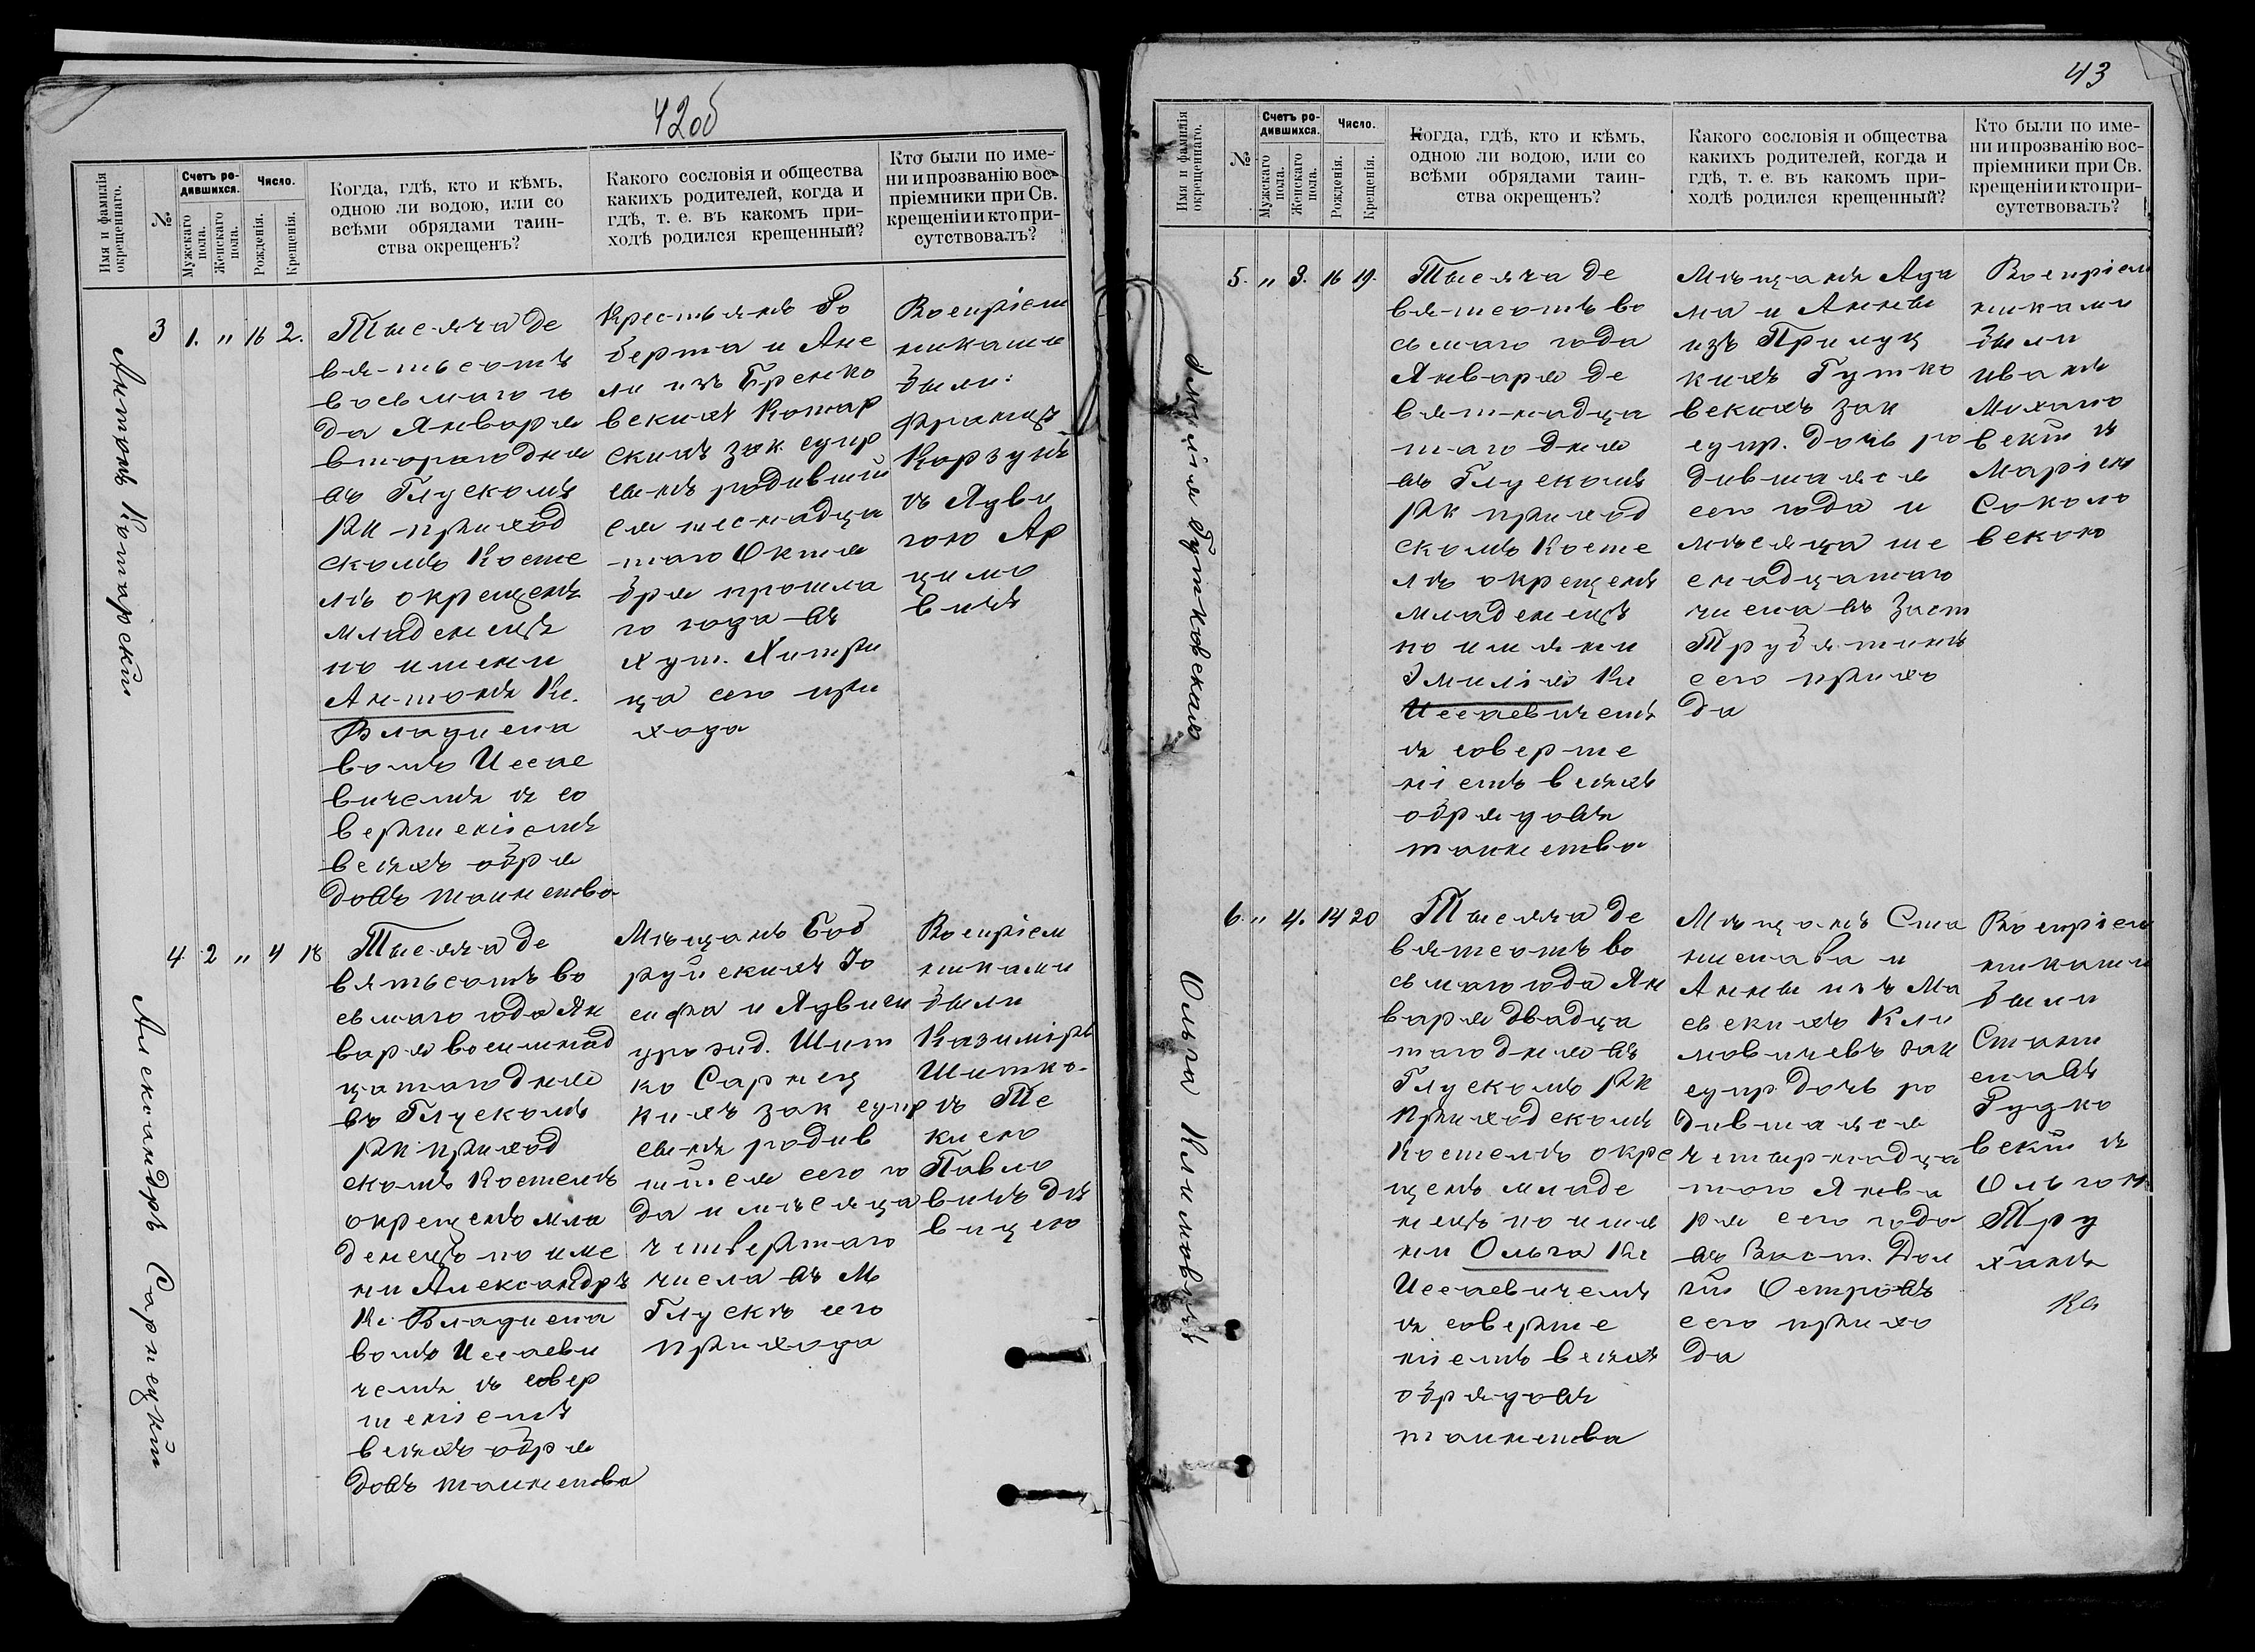 42об
Имя и фамилія
окрещеннаго.
№
Счетъ ро-
дившихся.
Мужскаго
пола.
Женскаго
пола.
Число.
Рожденія.
Крещенія.
Когда, гдѣ, кто и кѣмъ,
одною ли водою, или со
всѣми обрядами таин-
ства окрещенъ?
Какого сословія и общества
какихъ родителей, когда и
гдѣ, т. е. въ какомъ при-
ходѣ родился крещенный?
Кто были по име-
ни и прозванію вос-
пріемники при Св.
крещеніи и кто при-
сутствовалъ?
Антонъ Котарскій
3 1. " 16 2.
Тысяча де
вятьсотъ
восьмаго го
да Января
второго дня
въ Глускомъ
РК приход
скомъ Косте
лѣ окрещенъ
младенецъ
по имени
Антонъ Кс.
Владисла
вомъ Иссае
вичемъ съ со
вершеніемъ
всѣхъ обря
довъ таинства
Крестьянъ Ро
берта и Ане
ли изъ Бренко
вскихъ Котар
скихъ зак. супр
сынъ родивший
ся шеснадца
таго Октя
бря прошла
го года въ
Хут. Хитри
ца сего при
хода
Воспріем
никами
были:
Францъ
Корзунъ
съ Ядви
гою Ар
цимо
вичъ
Александръ Сарнецкій
4 2 " 4 18
Тысяча де
вятьсотъ во
сьмаго года Ян
варя восемнад
цатаго дня
въ Глускомъ
РК приход
скомъ Костелѣ
окрещенъ мла
денецъ по име
ни Александръ
Кс. Владисла
вомъ Иссаеви
чемъ съ совер
шеніемъ
всѣхъ обря
довъ таинства
Мѣщанъ Боб
руйскихъ Іо
сифа и Ядвиги
урожд. Шит
ко Сарнец
кихъ зак супр
сынъ родив
шійся сего го
да и мѣсяца
четвертаго
числа въ М.
Глускѣ сего
прихода
Воспріем
никами
были
Казиміръ
Шитко
съ Те
клею
Павло
вичъ дѣ
вицею
43
Имя и фамилія
окрещеннаго.
№
Счетъ ро-
дившихся.
Мужскаго
пола.
Женскаго
пола.
Число.
Рожденія.
Крещенія.
Когда, гдѣ, кто и кѣмъ,
одною ли водою, или со
всѣми обрядами таин-
ства окрещенъ?
Какого сословія и общества
какихъ родителей, когда и
гдѣ, т. е. въ какомъ при-
ходѣ родился крещенный?
Кто были по име-
ни и прозванію вос-
пріемники при Св.
крещеніи и кто при-
сутствовалъ?
Эмилія Гутковская
5. " 3. 16 19.
Тысяча де
вятсотъ во
сьмаго года
Января де
вятнадца
таго дня
въ Глускомъ
РК приход
скомъ Косте
лѣ окрещенъ
младенецъ
по имяни
Эмилія Кс
Иссаевичемъ
съ соверше
ніемъ всѣхъ
обрядовъ
таинства
Мѣщанъ Ада
ма и Анны
изъ Прилуц
кихъ Гутко
вскихъ зак
супр. дочь ро
дившаяся
сего года и
мѣсяца ше
снадцатаго
числа въ Заст
Трубятинѣ
сего прихо
да
Воспріем
никами
были
Иванъ
Михало
вскій съ
Маріею
Соколо
вскою
Ольга Климовичъ
6. " 4. 14 20
Тысяча де
вятсотъ во
сьмаго года Ян
варя двадца
таго дня въ
Глускомъ РК
приходскомъ
Костелѣ окре
щенъ младе
нецъ по имя
ни Ольга Кс
Иссаевичемъ
съ соверше
ніемъ всѣхъ
обрядовъ
таинства
Мѣщанъ Ста
нислава и
Анны изъ Ма
евскихъ Кли
мовичевъ зак
супр. дочь ро
дившаяся
четырнадца
таго Янва
ря сего года
въ Заст. Дол
гій Островъ
сего прихо
да
Воспріем
никами
были
Стани
славъ
Рудко
вскій съ
Ольгою
Тру
хань